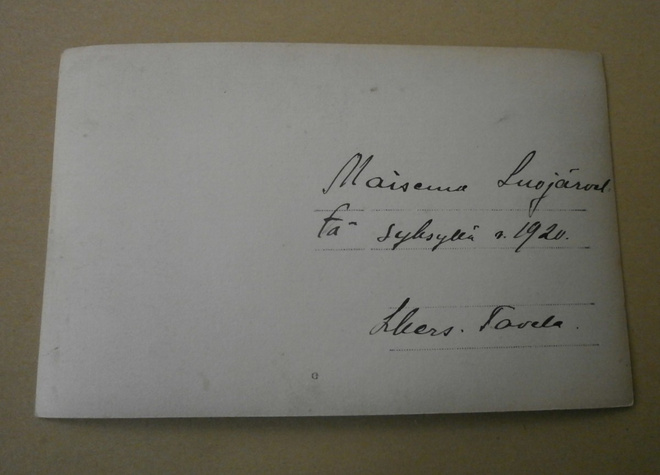 Maisema Suojärvel
tä syksyllä v. 1920.
Tavela.